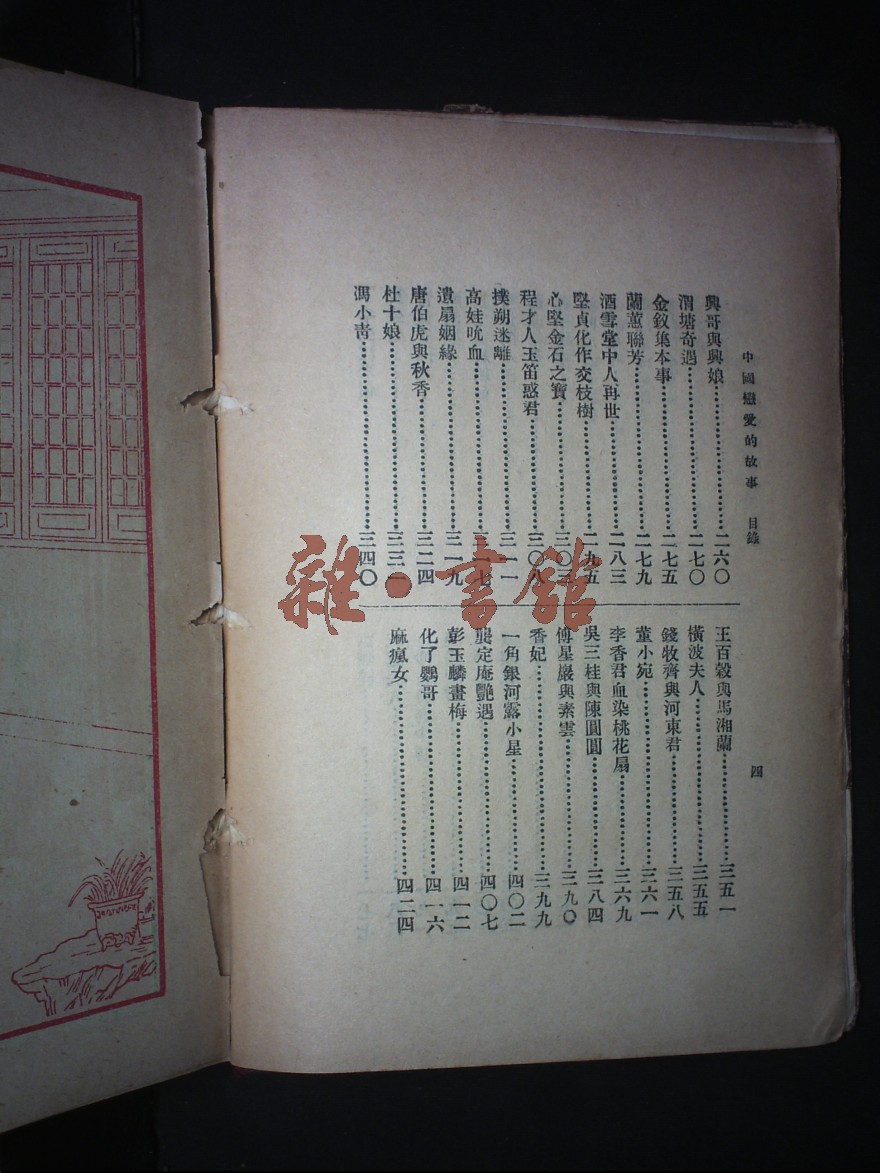 中國戀愛的故事 目錄
四
興哥與興娘……二六〇
渭塘奇遇……二七〇
金釵集本事……二七五
蘭蕙聯芳……二七九
洒雪堂中人再世……二八三
堅貞化作交枝樹……二九五
心堅金石之寶……三〇三
程才人玉笛惑君……三〇八
撲朔迷離……三一一
高娃吮血……三一七
遺扇姻緣……三一九
唐伯虎與秋香……三二四
杜十娘……三三一
馮小青……三四〇
王百穀與馬湘蘭……三五一
橫波夫人……三五五
錢牧齊與河東君……三五八
董小宛……三六一
李香君血染桃花扇……三六九
吳三桂與陳圓圓……三八四
傅星巖與素雲……三九〇
香妃……三九九
一角銀河露小星……四〇二
龔定庵艷遇……四〇七
彭玉麟畫梅……四一二
化了鸚哥……四一六
麻瘋女……四二四
雜·書館